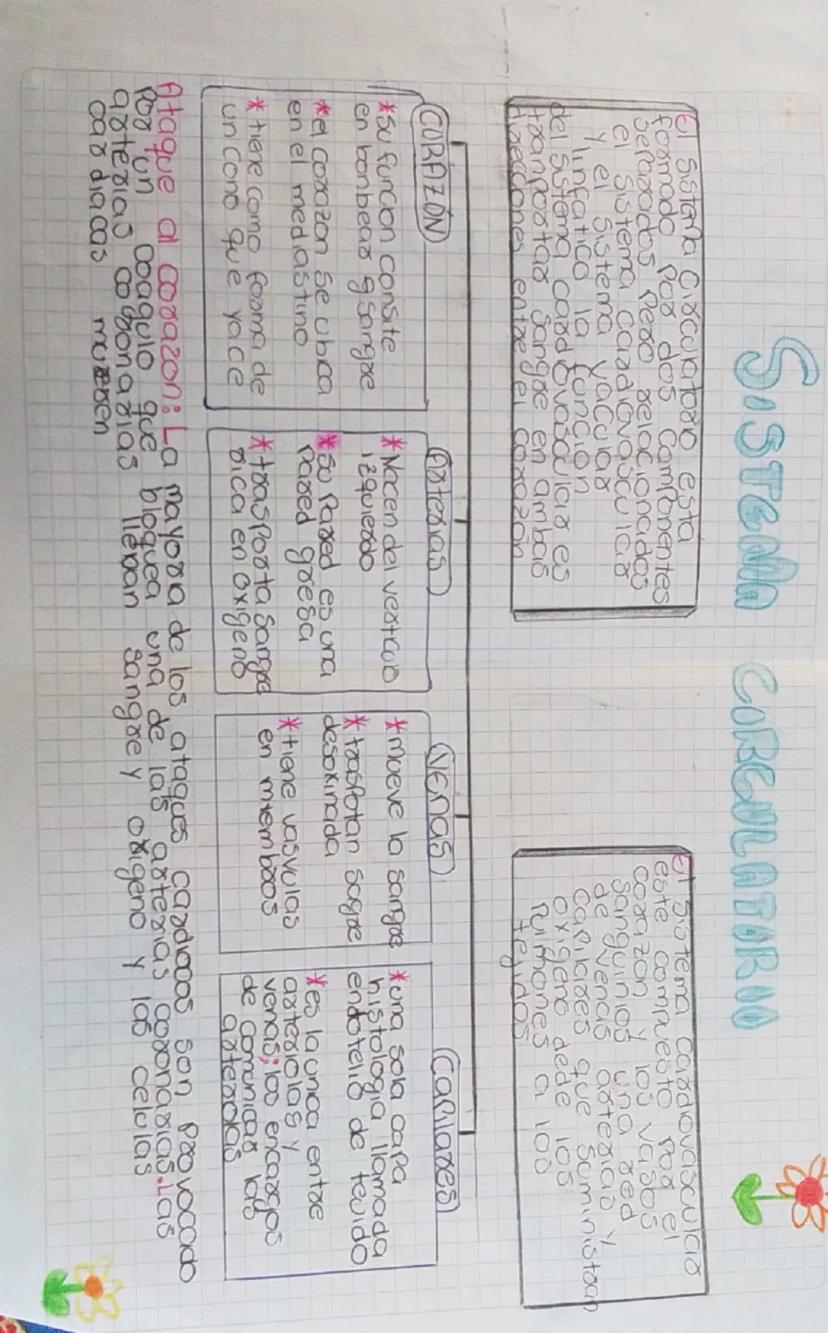 SISTEMA CORCULATORIO
El sistema circulatorio esta
formado por dos componentes
separados pero relacionados
el sistema cardiovascular
y el sistema vacular
linfatico la funcion
del sistema cardiovascular es
tranportar sangre en ambas
direcciones entre el corazon
El sistema cardiovascular
este compuesto por el
corazon y los vasos
sanguinios una red
de venas arterias y
capilares que suministran
oxigeno dede los
pulmones a los
tejidos
CORAZÓN
*su funcion consite
en bonbear sangre
*el corazon se ubica
en el mediastino
*tiene como forma de
un cono que yace
Arterias
*Nacen del
izquierdo
*su pared es una
pared gresa
*trasporta sangre
rica en oxigeno
Venas
*mueve la sangre
*trasportan sagre
desoxinada
*tiene vasvulas
en miembros
Capilares
*una sola capa
histologia llamada
endotelio de tejido
*es la unica entre
arteriolas y
venas; los encargos
de comunicar las
arterias
Ataque al corazon: La mayora de los ataques cardiacos son provocado
por un coagulo que bloquea una de las arterias coronarias. Las
arterias coronarias lleban sangre y oxigeno y las celulas
cardiacas mueren